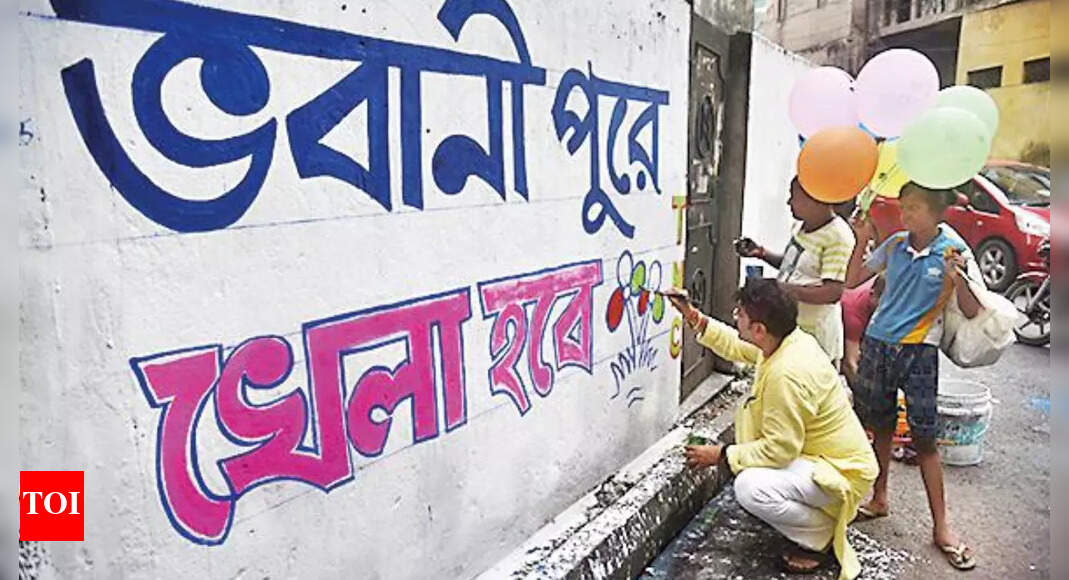 ভবানী পুরে
খেলা হবে
TMC
TOI